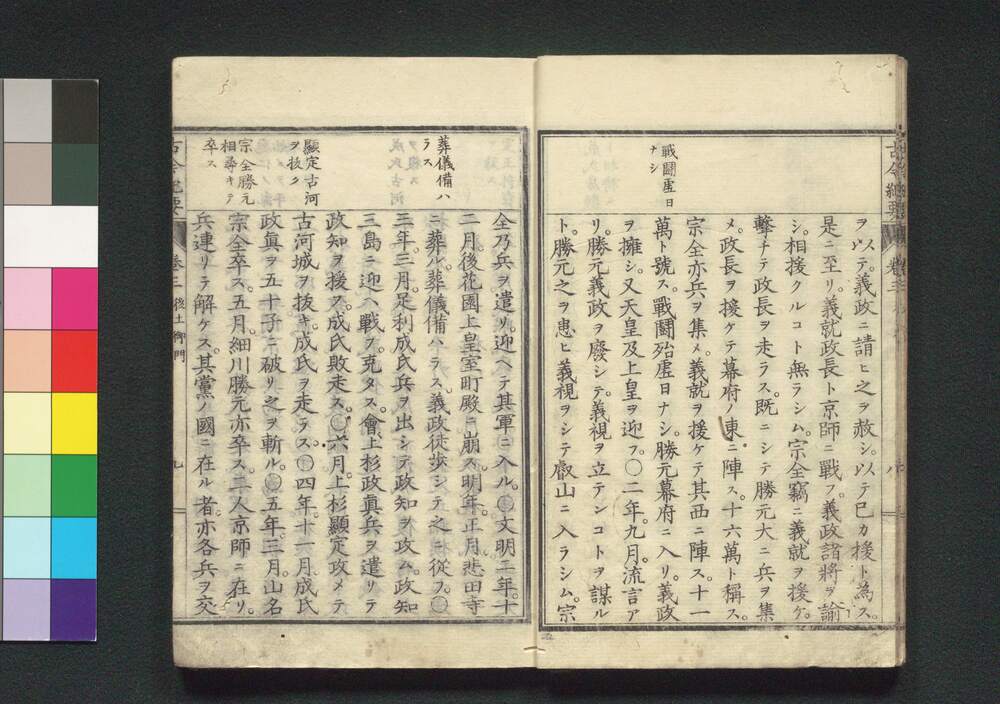 古今紀要 卷三
八
戰鬪虛日
ナシ
ヲ以テ義政ニ請ヒ之ヲ赦シ。以テ已カ援ト為ス。
是ニ至リ義就政長ト京師ニ戰フ。義政諸將ヲ諭
シ。相援クルコト無ラシム。宗全竊ニ義就ヲ援ケ。
擊チテ政長ヲ走ラス。既ニシテ勝元大ニ兵ヲ集
メ。政長ヲ援ケテ幕府ノ東ニ陣ス。十六萬ト稱ス。
宗全亦兵ヲ集メ。義就ヲ援ケテ其西ニ陣ス。十一
萬ト號ス。戰鬪殆虛日ナシ。勝元幕府ニ入リ。義政
ヲ擁シ。又天皇及上皇ヲ迎フ。○二年。九月。流言ア
リ。勝元義政ヲ廢シテ。義視ヲ立テンコトヲ謀ル
ト。勝元之ヲ患ヒ義視ヲシテ叡山ニ入ラシム。宗
葬儀備ハ
ラス
顯定古河
ヲ抜ク
宗全勝元
相尋キテ
卒ス
全乃兵ヲ遣リ。迎ヘテ其軍ニ入ル。○文明二年。十
二月。後花園上皇室町殿ニ崩ス。明年。正月。悲田寺
ニ葬ル。葬儀備ハラス。義政徒歩シテ之ニ從フ。○
三年。三月。足利成氏兵ヲ出シテ政知ヲ攻ム。政知
三島ニ迎ヘ戰フ。克タス。會上杉政眞兵ヲ遣リテ
政知ヲ援フ。成氏敗走ス。○六月。上杉顯定攻メテ
古河城ヲ抜キ。成氏ヲ走ラス。○四年。十一月。成氏
政眞ヲ五十子ニ破リ之ヲ斬ル。○五年。三月。山名
宗全卒ス。五月。細川勝元亦卒ス。二人京師ニ在リ。
兵連リテ解ケス。其黨ノ國ニ在ル者。亦各兵ヲ交
卷三 後土御門
九